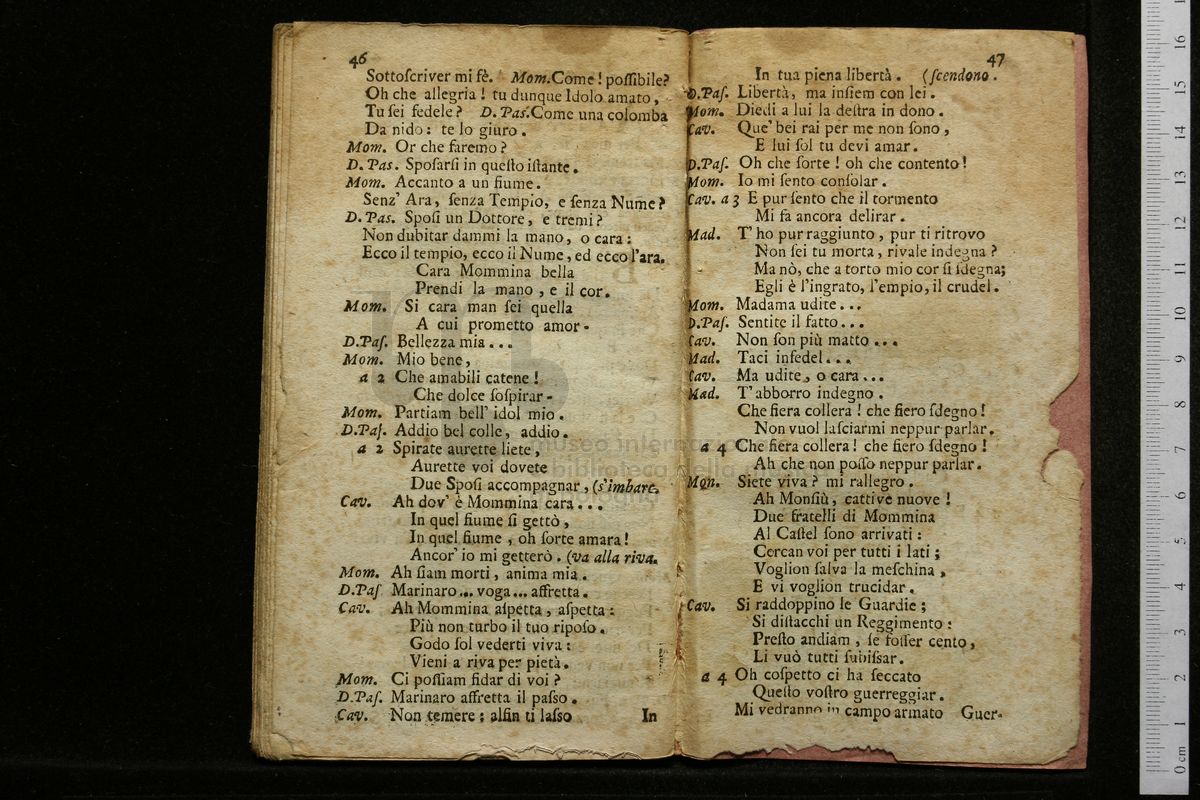 46
Sottoſcriver mi fè. Mom.Come! poſſibile?
Oh che allegria! tu dunque Idolo amato,
Tu ſei fedele? D. Paſ.Come una colomba
Da nido: te lo giuro.
Mom. Or che faremo?
D. Pas. Spoſarſi in queſto iſtante.
Mom. Accanto a un fiume.
Senz' Ara, ſenza Tempio, e ſenza Nume?
D. Pas. Spoſi un Dottore, e tremi?
Non dubitar dammi la mano, o cara:
Ecco il tempio, ecco il Nume, ed ecco l'ara.
Cara Mommina bella
Prendi la mano, e il cor.
Mom. Si cara man ſei quella
A cui prometto amor.
D.Paſ. Bellezza mia...
Mom. Mio bene,
a 2 Che amabili catene!
Che dolce ſoſpirar.
Mom. Partiam bell' idol mio.
D.Paſ. Addio bel colle, addio.
a 2 Spirate aurette liete,
Aurette voi dovete
Due Spoſi accompagnar, (s'imbarc.
Cav. Ah dov' è Mommina cara...
In quel fiume ſi gettò,
In quel fiume, oh ſorte amara!
Ancor' io mi getterò. (va alla riva.
Mom. Ah ſiam morti, anima mia.
D.Paſ Marinaro... voga... affretta.
Cav. Ah Mommina aſpetta, aſpetta:
Più non turbo il tuo ripoſo.
Godo ſol vederti viva:
Vieni a riva per pietà.
Mom. Ci poſſiam fidar di voi?
D.Paſ. Marinaro affretta il paſſo.
Cav. Non temere: alfin ti laſſo In
47
In tua piena libertà. (ſcendono.
D.Paſ. Libertà, ma inſiem con lei.
Mom. Diedi a lui la deſtra in dono.
Cav. Que' bei rai per me non ſono,
E lui ſol tu devi amar.
D.Paſ. Oh che ſorte! oh che contento!
Mom. Io mi ſento conſolar.
Cav. a 3 E pur ſento che il tormento
Mi fa ancora delirar.
Mad. T' ho pur raggiunto, pur ti ritrovo
Non ſei tu morta, rivale indegna?
Ma nò, che a torto mio cor ſi ſdegna;
Egli è l'ingrato, l'empio, il crudel.
Mom. Madama udite...
D.Paſ. Sentite il fatto...
Cav. Non ſon più matto...
Mad. Taci infedel...
Cav. Ma udite, o cara...
Mad. T' abborro indegno.
Che fiera collera! che fiero ſdegno!
Non vuol laſciarmi neppur parlar.
a 4 Che fiera collera! che fiero ſdegno!
Ah che non poſſo neppur parlar.
Mon. Siete viva? mi rallegro.
Ah Monſiù, cattive nuove!
Due fratelli di Mommina
Al Caſtel ſono arrivati:
Cercan voi per tutti i lati;
Voglion ſalva la meſchina,
E vi voglion trucidar.
Cav. Si raddoppino le Guardie;
Si diſtacchi un Reggimento:
Preſto andiam, ſe foſſer cento,
Li vuò tutti ſubiſſar.
a 4 Oh coſpetto ci ha ſeccato
Queſto voſtro guerreggiar.
Mi vedranno in campo armato Guer-